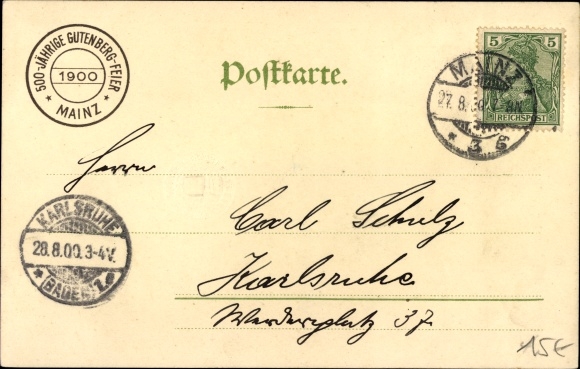 500-JÄHRIGE GUTENBERG-FEIER
1900
* MAINZ *
Postkarte.
5 5
REICHSPOST
MAINZ 1
27.8.00
* 3 6
Herrn
KARLSRUHE
28.8.00.3-4V.
* (BADEN) 1. *
Carl Schulz
Karlsruhe
Werderplatz 37
15€